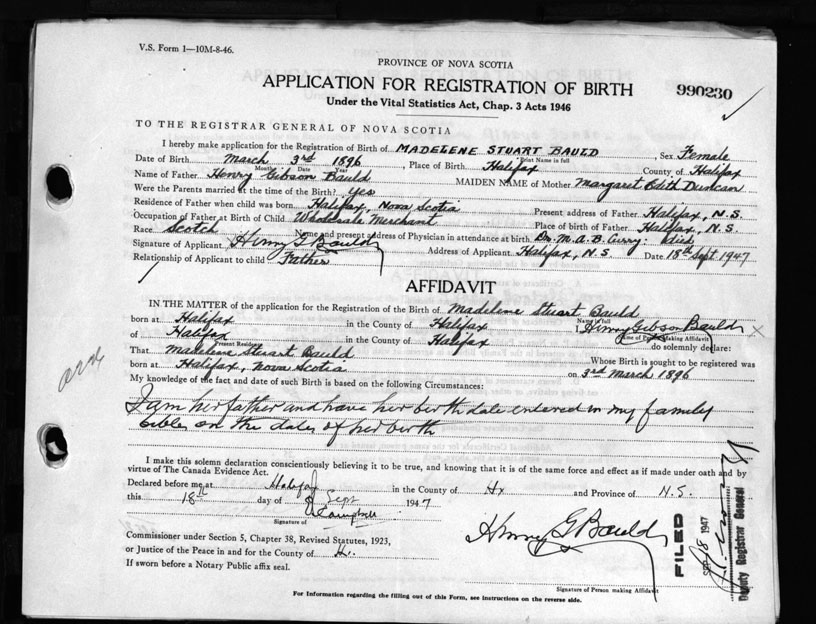 V.S. Form 1—10M-8-46.
PROVINCE OF NOVA SCOTIA
APPLICATION FOR REGISTRATION OF BIRTH
990230
Under the Vital Statistics Act, Chap. 3 Acts 1946
TO THE REGISTRAR GENERAL OF NOVA SCOTIA
I hereby make application for the Registration of Birth of MADELENE STUART BAULD, Sex Female
Print Name in full
Date of Birth March 3rd 1896, Place of Birth Halifax County of Halifax
Month Date Year
Name of Father Henry Gibson Bauld MAIDEN NAME of Mother Margaret Edith Duncan
Were the Parents married at the time of the Birth? Yes
Residence of Father when child was born Halifax, Nova Scotia Present address of Father Halifax, N.S.
Occupation of Father at Birth of Child Wholesale Merchant Place of birth of Father Halifax, N.S.
Race Scotch Name and present address of Physician in attendance at birth Dr. M.A.B. Curry: died
Signature of Applicant Henry G Bauld Address of Applicant Halifax, N.S. Date 18th Sept 1947
Relationship of Applicant to child Father
AFFIDAVIT
IN THE MATTER of the application for the Registration of Birth of Madelene Stuart Bauld
Name in full
born at Halifax in the County of Halifax I, Henry Gibson Bauld X
Name of Person Making Affidavit
of Halifax in the County of Halifax do solemnly declare:
Present Residence
That Madelene Stuart Bauld Whose Birth is sought to be registered was
born at Halifax, Nova Scotia on 3rd March 1896
My knowledge of the fact and date of such Birth is based on the following Circumstances:
I am her father and have her birth date entered in my family
bible on the date of her birth
I make this solemn declaration conscientiously believing it to be true, and knowing that it is of the same force and effect as if made under oath and by
virtue of The Canada Evidence Act.
Declared before me at Halifax in the County of Hx and Province of N.S.
this 18th day of Sept 1947
Campbell
Signature of
Henry G Bauld
Commissioner under Section 5, Chapter 38, Revised Statutes, 1923,
or Justice of the Peace in and for the County of
If sworn before a Notary Public affix seal.
Signature of Person making Affidavit
For Information regarding the filling out of this Form, see instructions on the reverse side.
FILED
1947
Deputy Registrar General